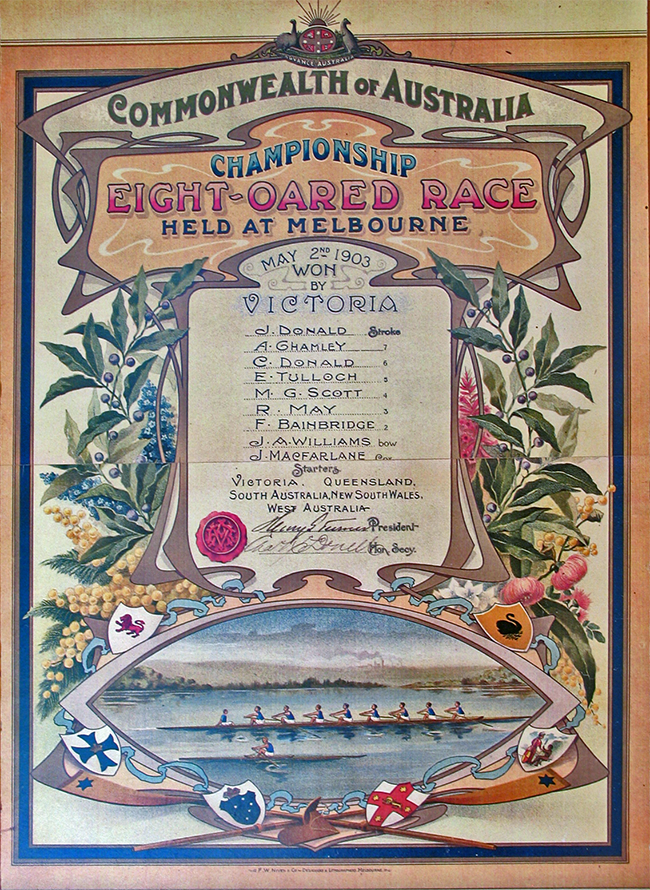 ADVANCE AUSTRALIA
COMMONWEALTH OF AUSTRALIA
CHAMPIONSHIP
EIGHT-OARED RACE
HELD AT MELBOURNE
MAY 2ND 1903
WON
BY
VICTORIA
J. DONALD Stroke
A. GHAMLEY 7
C. DONALD 6
E. TULLOCH 5
M. G. SCOTT 4
R. MAY 3
F. BAINBRIDGE 2
J. A. WILLIAMS bow
J. MACFARLANE Cox
Starters
VICTORIA. QUEENSLAND,
SOUTH AUSTRALIA, NEW SOUTH WALES,
WEST AUSTRALIA
President
Hon. Secy.
F. W. NIVEN & CO DESIGNERS & LITHOGRAPHERS MELBOURNE